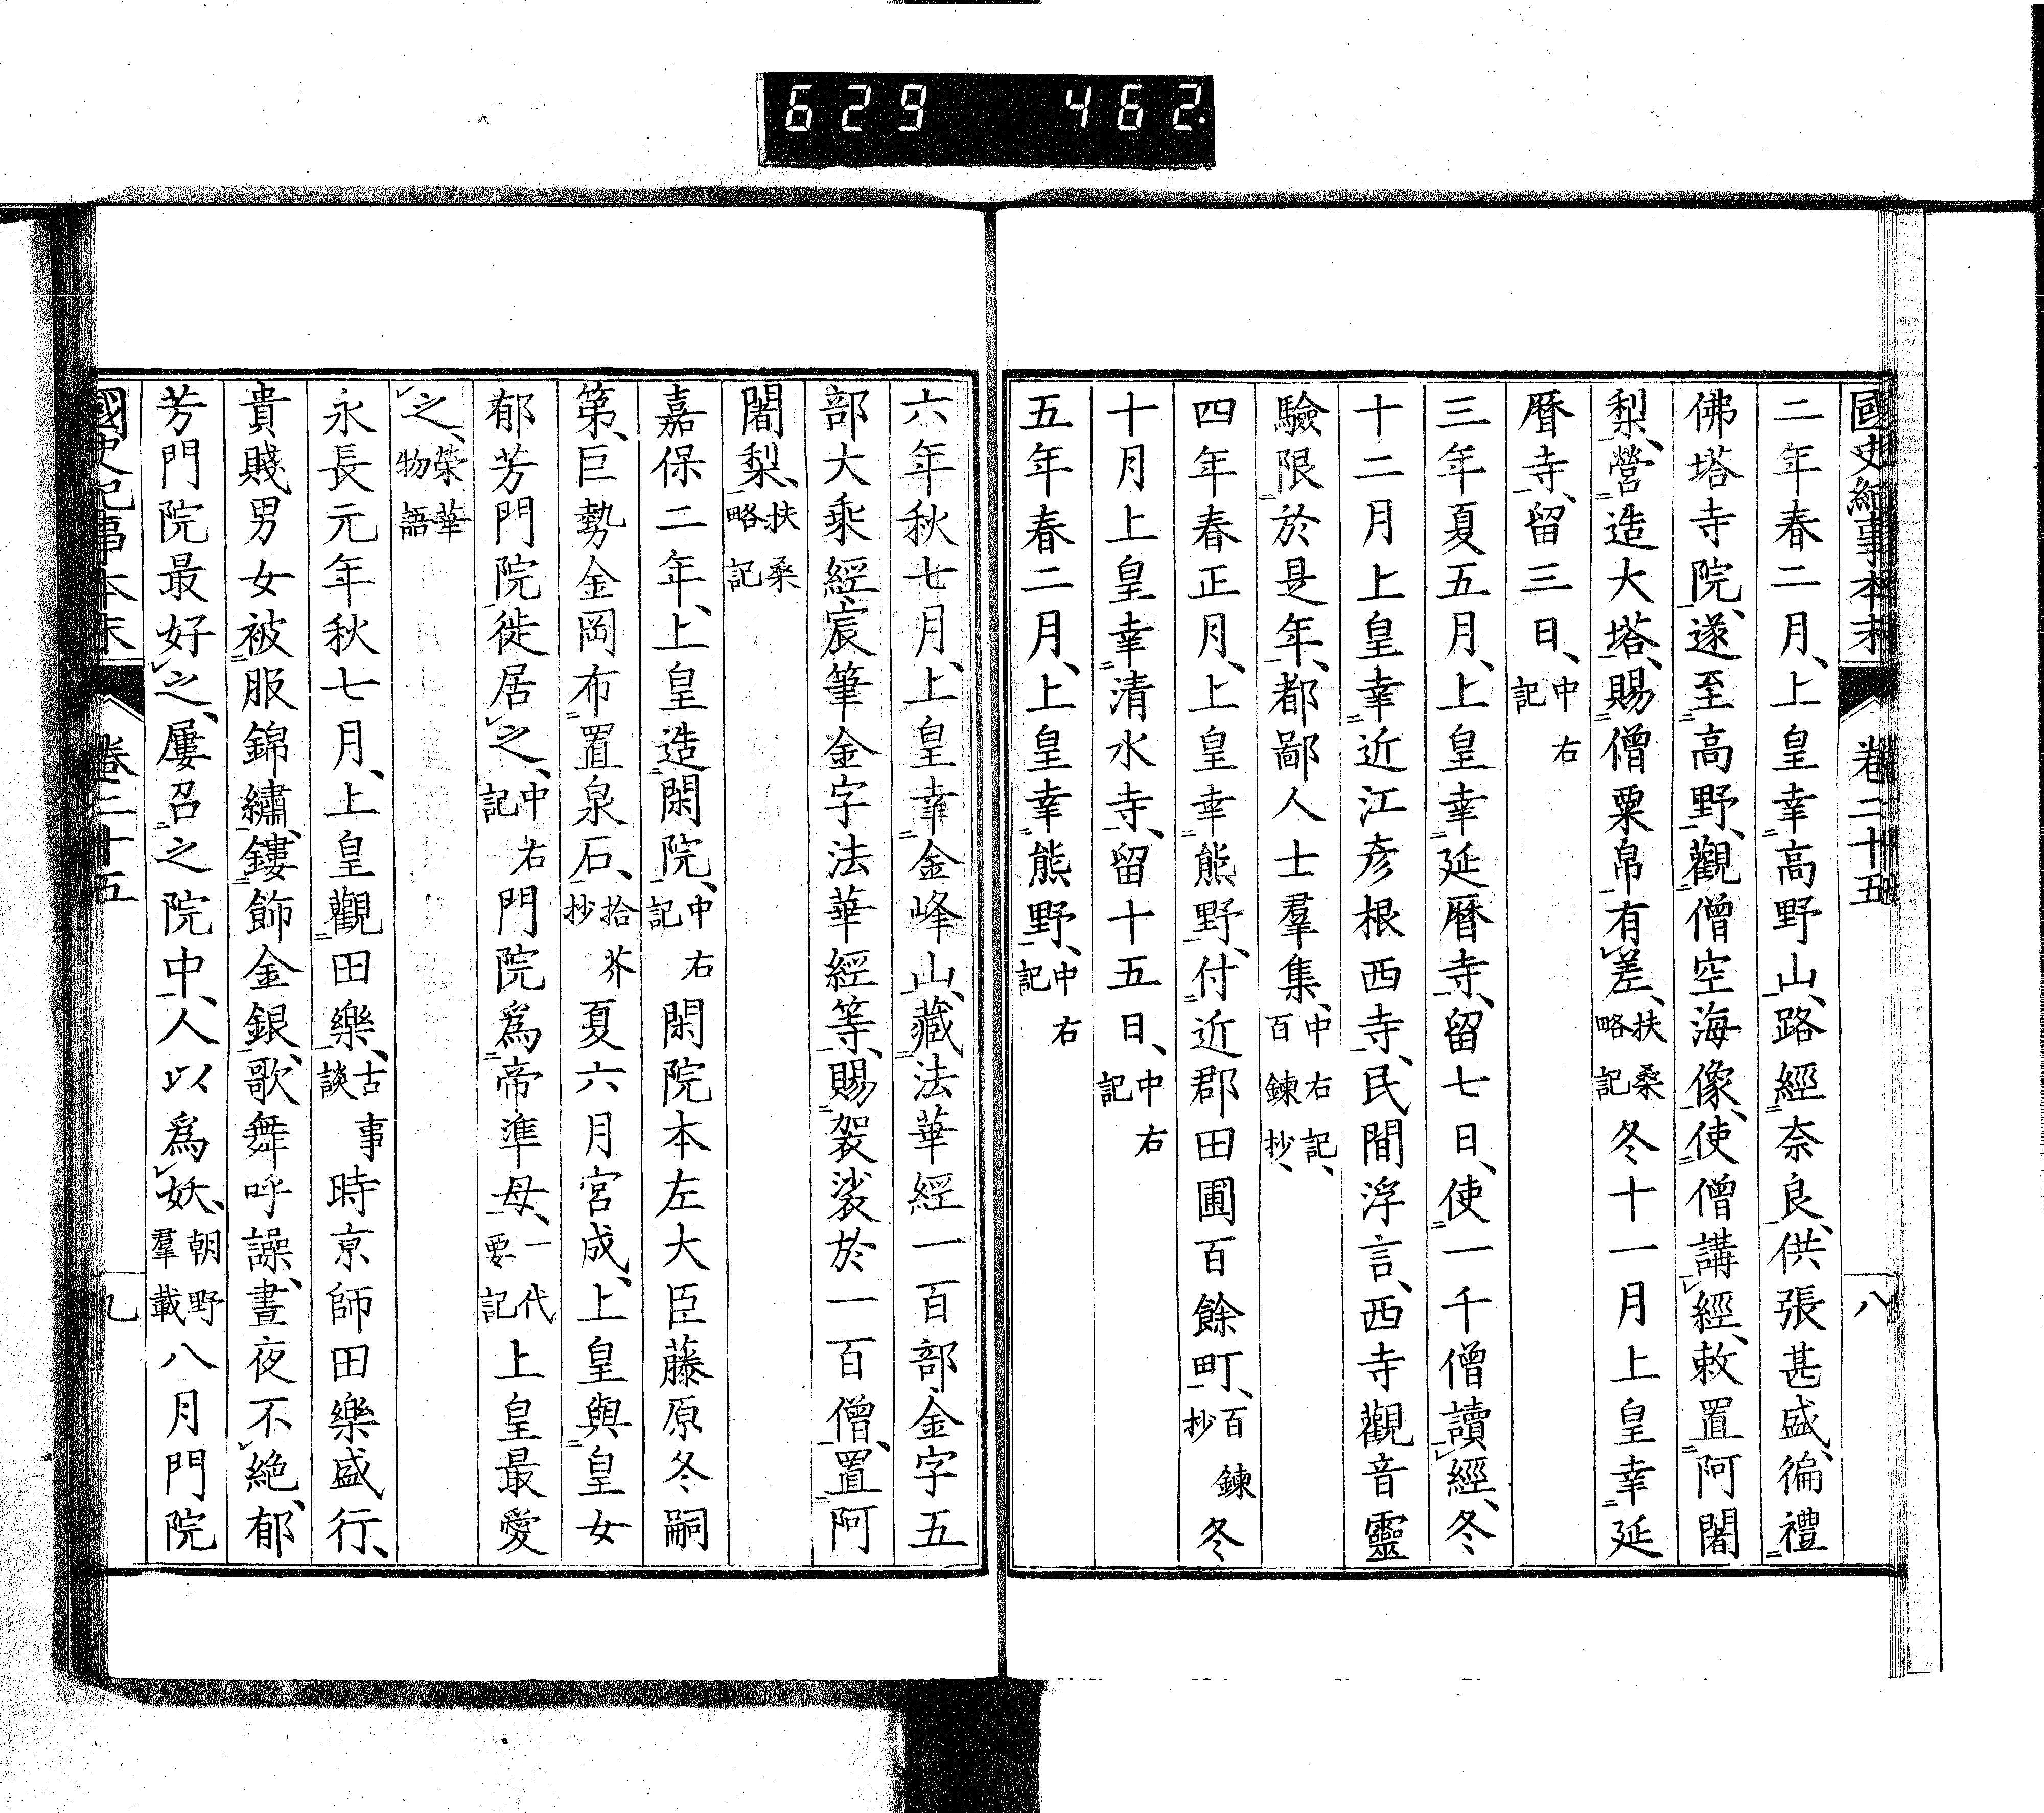 629 462
國史紀事本末 卷二十五 八
二年春二月、上皇幸高野山、路經奈良、供張甚盛、徧禮
佛塔寺院、遂至高野、觀僧空海像、使僧講經、敕置阿闍
梨、營造大塔、賜僧粟帛有差、扶桑略記冬十一月上皇幸延
暦寺、留三日、中右記
三年夏五月、上皇幸延暦寺、留七日、使一千僧讀經、冬
十二月上皇幸近江彦根西寺、民間浮言、西寺觀音靈
驗限於是年、都鄙人士羣集、中右記、百鍊抄、
四年春正月、上皇幸熊野、付近郡田圃百餘町、百鍊抄冬
十月上皇幸清水寺、留十五日、中右記
五年春二月、上皇幸熊野、中右記
六年秋七月、上皇幸金峰山、藏法華經一百部金字五
部大乘經宸筆金字法華經等、賜袈裟於一百僧、置阿
闍梨、扶桑略記
嘉保二年、上皇造閑院、中右記閑院本左大臣藤原冬嗣
第、巨勢金岡布置泉石、拾芥抄夏六月宮成、上皇與皇女
郁芳門院徙居之、中右記門院爲帝準母、一代要記上皇最愛
之、榮華物語
永長元年秋七月、上皇觀田樂、古事談時京師田樂盛行、
貴賤男女被服錦繡、鏤飾金銀、歌舞呼譟、晝夜不絶、郁
芳門院最好之、屢召之院中、人以爲妖、朝野羣載八月門院
國史紀事本末 卷二十五 九